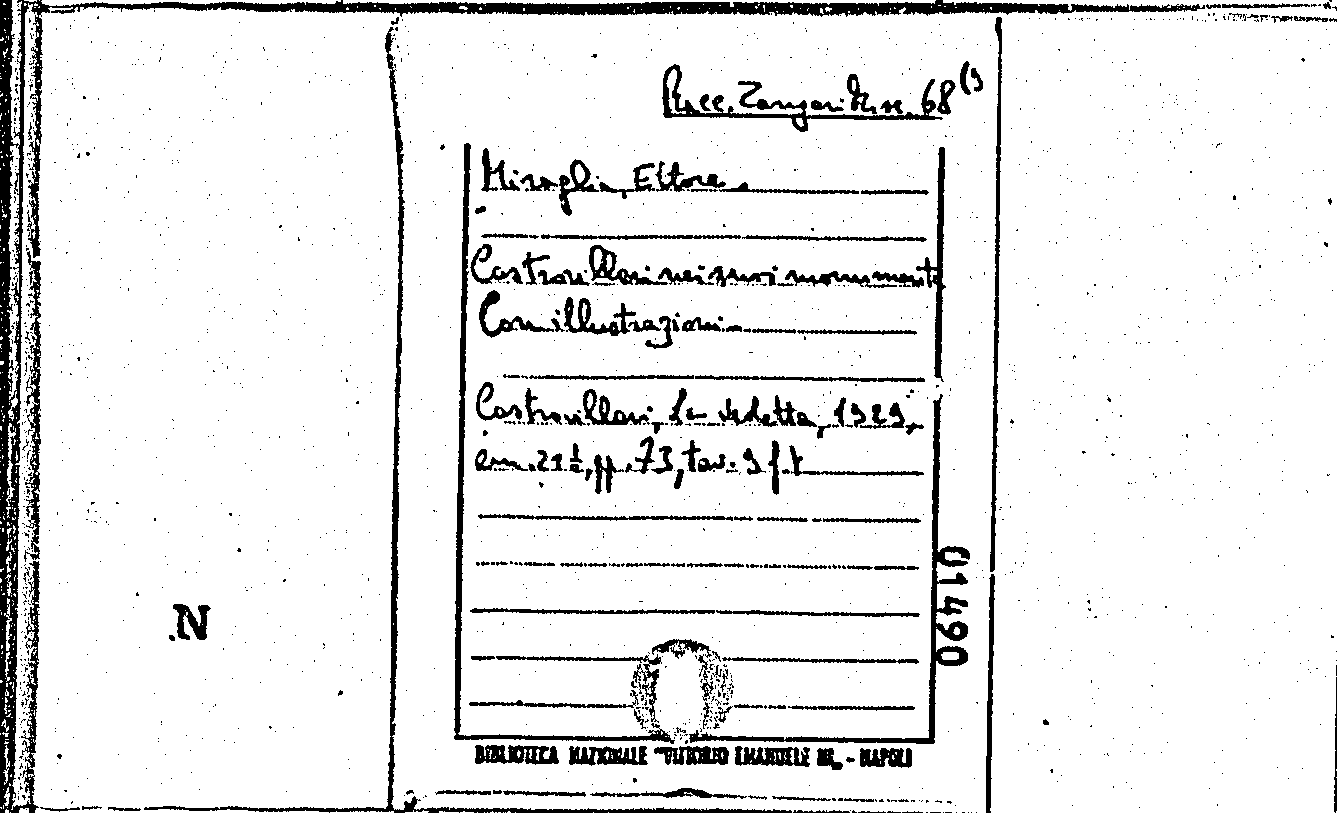 Racc. Zangari Misc. 68 (9
Miraglia, Ettore.
Castrovillari nei suoi monumenti
Con illustrazioni.
Castrovillari, La Vedetta, 1929,
cm. 21 ½, pp. 73, tav. 9 f. t.
01490
N
BIBLIOTECA NAZIONALE "VITTORIO EMANUELE III„ - NAPOLI